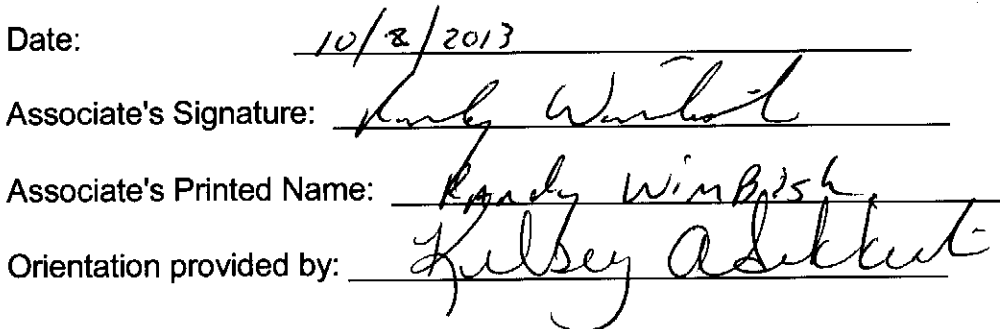 Date: 10/8/2013
Associate's Signature: Randy Wimbish
Associate's Printed Name: Randy WimBish
Orientation provided by: Kelsey A